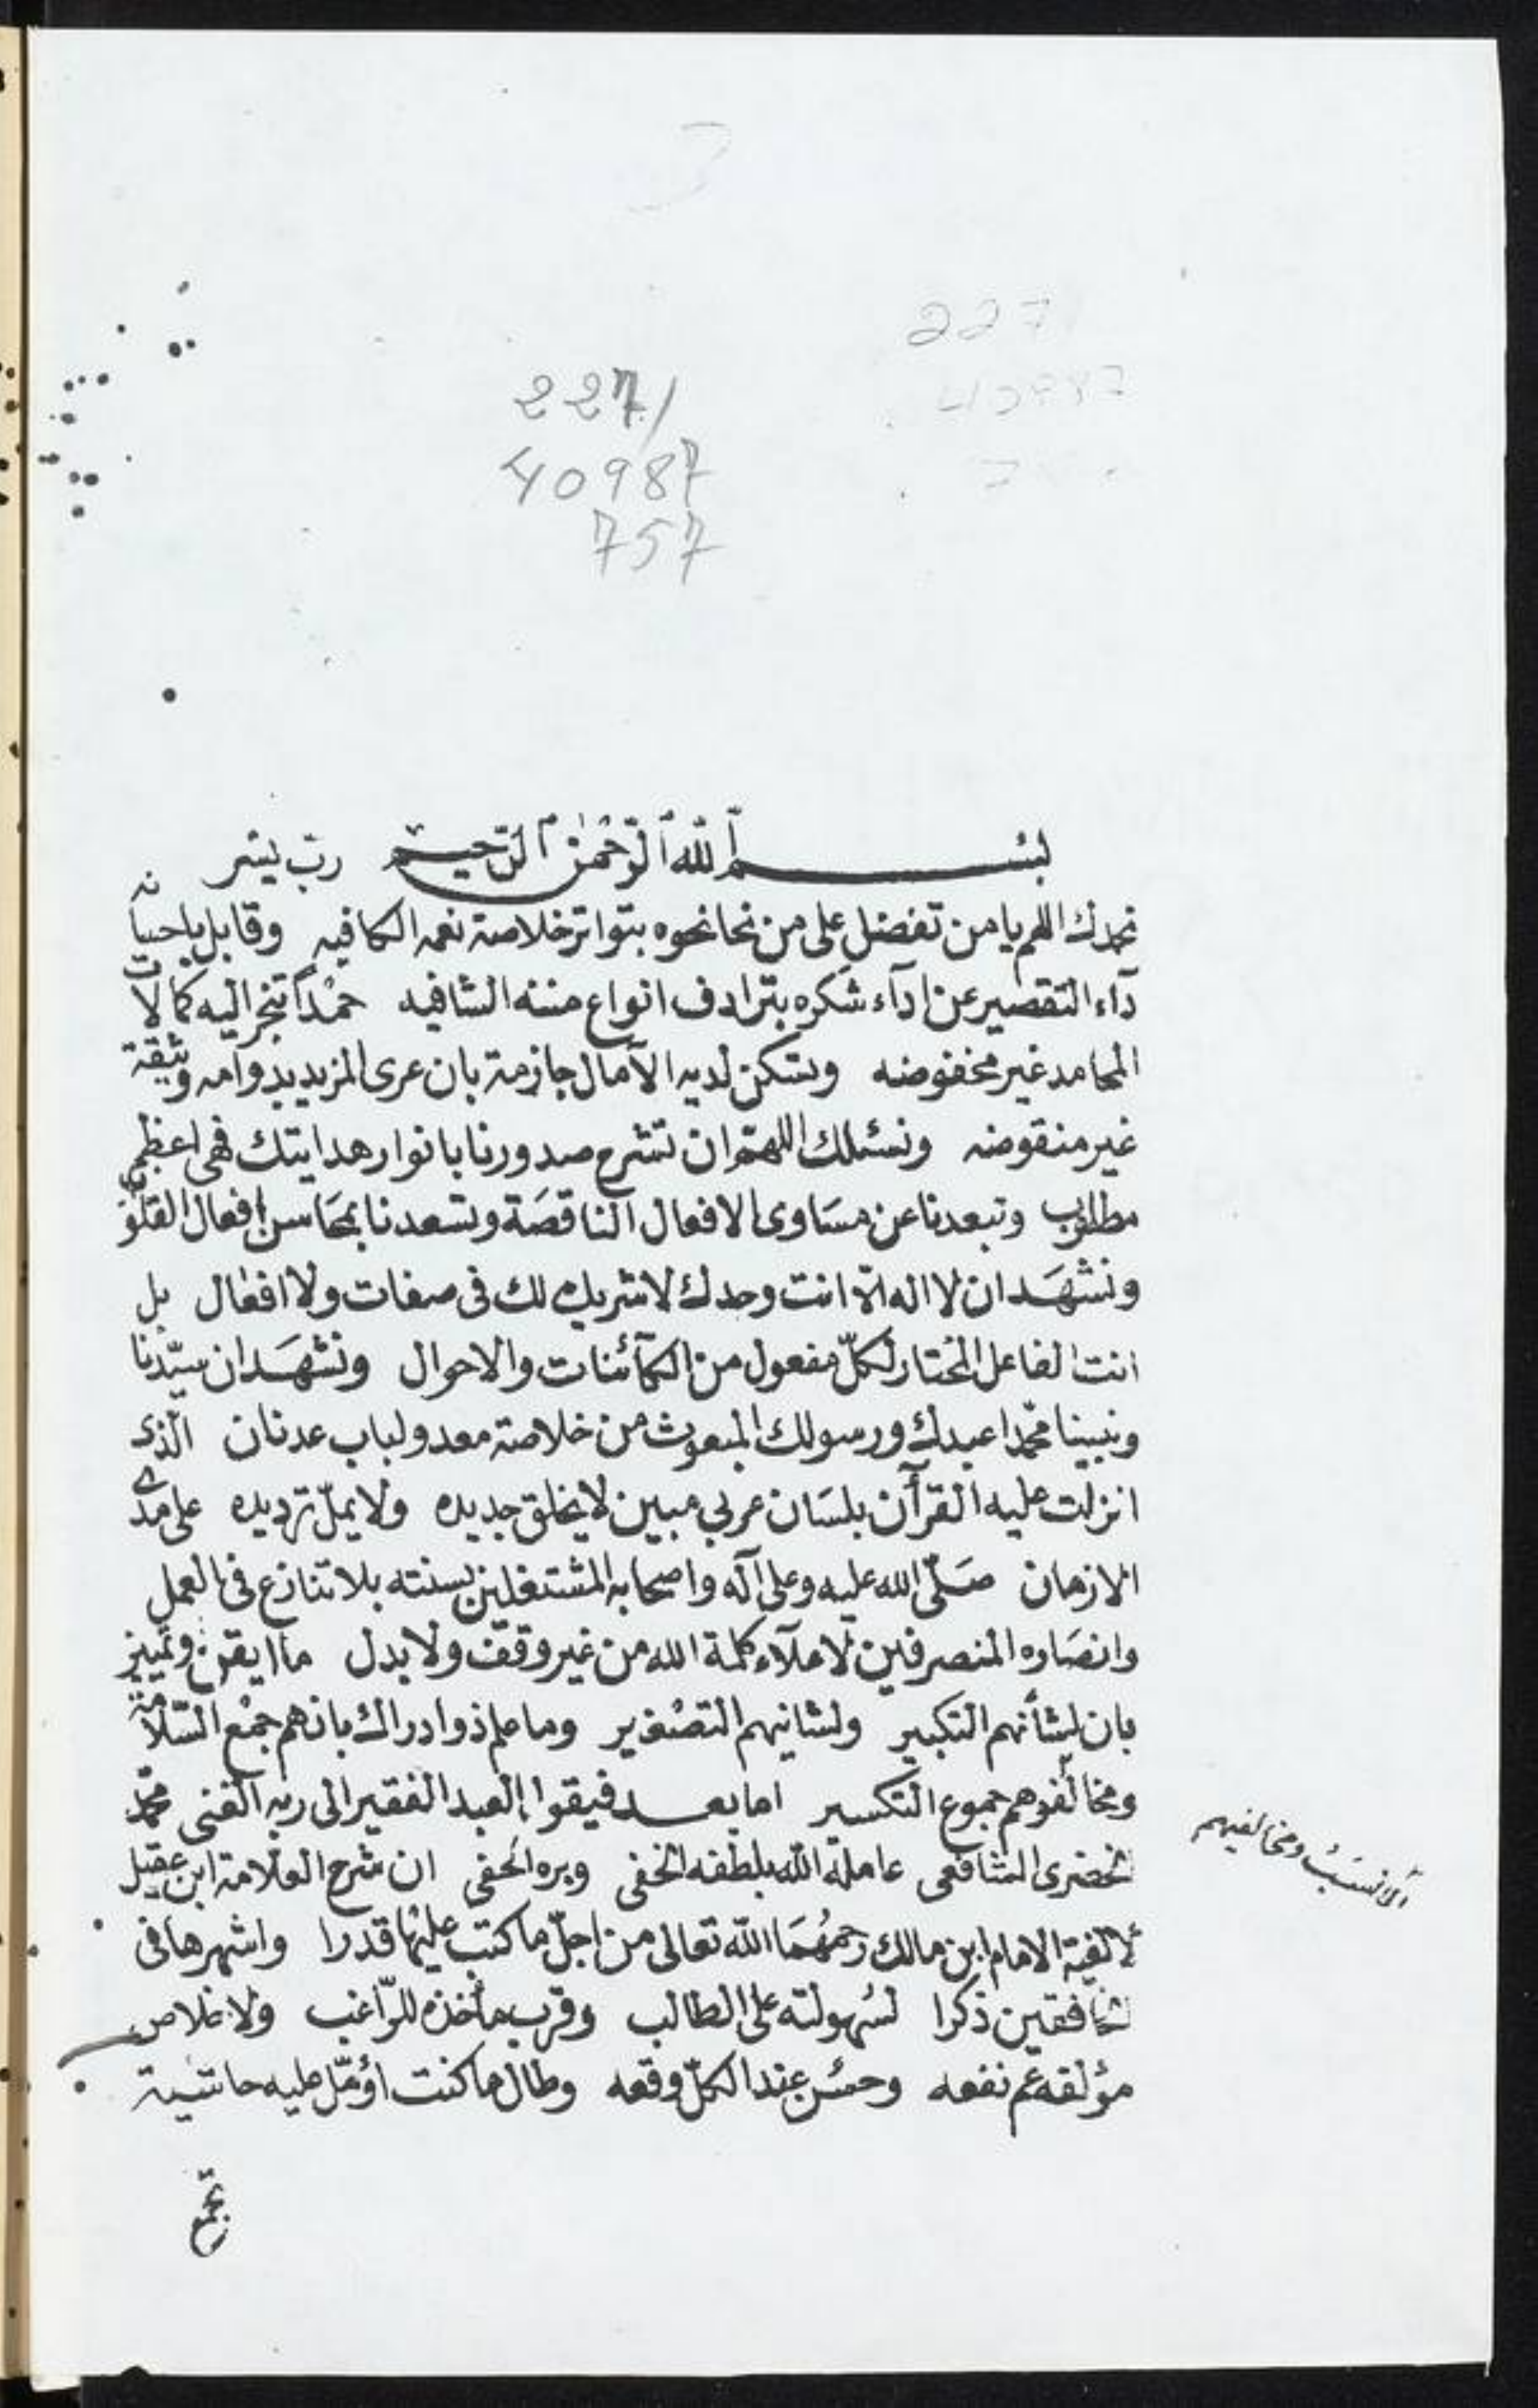 227/
40987
757
بسم الله الرحمن الرحيم رب يسر
نحمدك اللهم يا من تفضل على من نحا نحوه بتواتر خلاصة نعمه الكافيه وقابل باحسانه
دآء التقصير عن ادآء شكره بترادف انواع مننه الشافيه حمْداً تنجر اليه كمالات
المحامد غير مخفوضه وتسكن لديه الآمال جازمة بان عرى المزيد بدوامه وثيقة
غير منقوضه ونسئلك اللهمّ ان تشرح صدورنا بانوار هدايتك فهى اعظم
مطلوب وتبعدنا عن مسَاوى الافعال الناقصَة وتسعدنا بمحَاسن افعال القلوب
ونشهَد ان لا اله الّا انت وحدك لا شريك لك فى صفات ولا افعال بل
انت الفاعل المختار لكلّ مفعول من الكآئنات والاحوال ونشهَد ان سيّدنا
ونبينا محمّدا عبدك ورسولك المبعوث من خلاصة معد ولباب عدنان الّذى
انزلت عليه القرآن بلسَان عربي مبين لا يخلق جديده ولا يملّ ترديده على مدى
الازمان صَلّى الله عليه وعلى آله واصحابه المشتغلين بسنته بلا تنازع فى العمل
وانصَاره المنصرفين لاعلآء كلمة الله من غير وقف ولا بدل ما ايقن ذو تمييز
بان لشأنهم التكبير ولشانيهم التصْغير وما علم ذوا دراك بانهم جمْع السّلامة
ومخالفوهم جموع التكسير اما بعد فيقوا العبد الفقير الى ربه الغنى محمّد
الخضرى الشافعى عامله الله بلطفه الخفى وبره الحفى ان شرح العلّامة ابن عقيل
لالفية الامام ابن مالك رحمهُمَا الله تعالى من اجلّ ما كتب عليهَا قدرا واشهرها فى
الخافقين ذكرا لسُهولته على الطالب وقرب مأخذه للرّاغب ولاخلاص
مؤلفه عم نفعه وحسُن عند الكلّ وقعه وطال ما كنت اؤمّل عليه حاشية
الانسب ومخالفيهم
تجمع